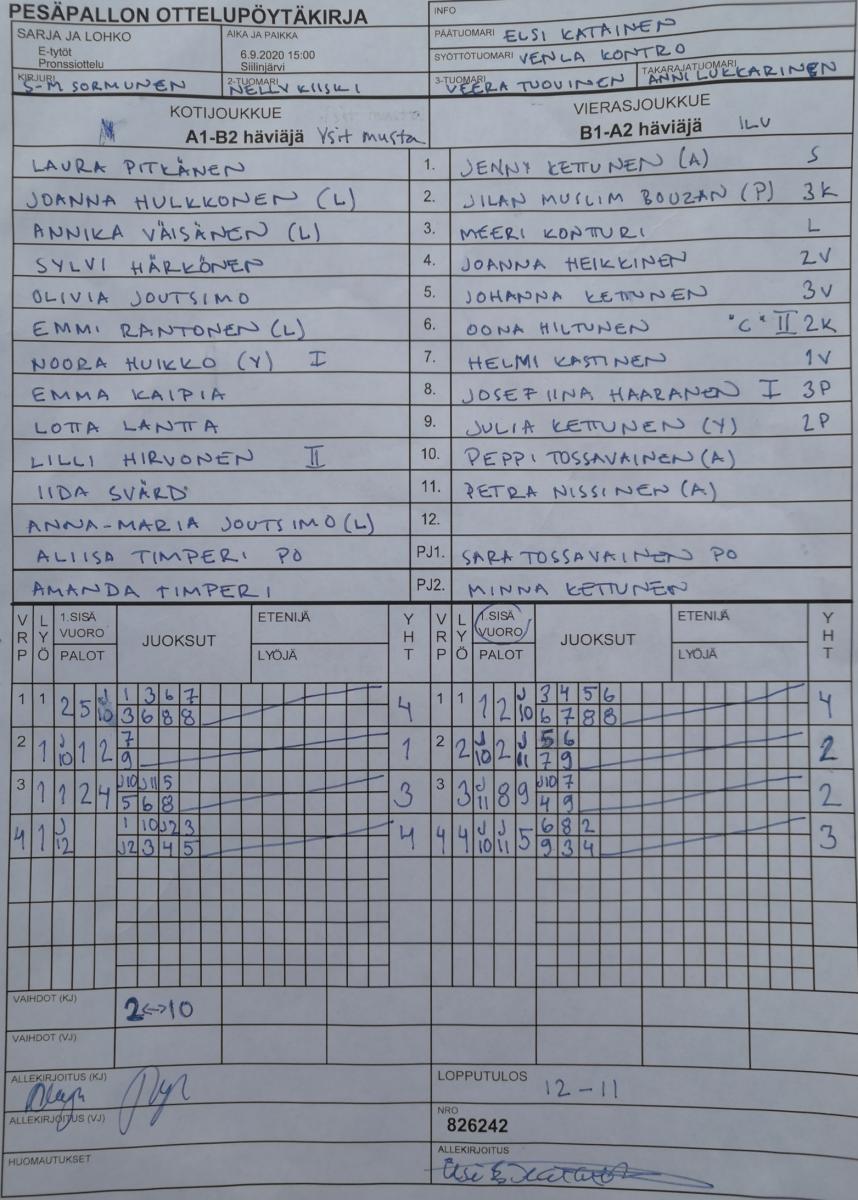 PESÄPALLON OTTELUPÖYTÄKIRJA
INFO
SARJA JA LOHKO
E-tytöt
Pronssiottelu
AIKA JA PAIKKA
6.9.2020 15:00
Siilinjärvi
PÄÄTUOMARI ELSI KATAINEN
SYÖTTÖTUOMARI VENLA KONTRO
KIRJURI S-M SORMUNEN
2-TUOMARI NELLY KIISKI
3-TUOMARI VEERA TUOVINEN
TAKARAJATUOMARI ANNI LUKKARINEN
KOTIJOUKKUE
A1-B2 häviäjä Ysit musta
VIERASJOUKKUE
B1-A2 häviäjä ILV
LAURA PITKÄNEN 1. JENNY KETTUNEN (A) S
JOANNA HULKKONEN (L) 2. JILAN MUSLIM BOUZAN (P) 3K
ANNIKA VÄISÄNEN (L) 3. MEERI KONTTURI L
SYLVI HÄRKÖNEN 4. JOANNA HEIKKINEN 2V
OLIVIA JOUTSIMO 5. JOHANNA KETTUNEN 3V
EMMI RANTONEN (L) 6. OONA HILTUNEN "C" II 2K
NOORA HUIKKO (Y) I 7. HELMI KASTINEN 1V
EMMA KAIPIA 8. JOSEFIINA HAARANEN I 3P
LOTTA LANTTA 9. JULIA KETTUNEN (Y) 2P
LILLI HIRVONEN II 10. PEPPI TOSSAVAINEN (A)
IIDA SVÄRD 11. PETRA NISSINEN (A)
ANNA-MARIA JOUTSIMO (L) 12.
ALIISA TIMPERI PO PJ1. SARA TOSSAVAINEN PO
AMANDA TIMPERI PJ2. MINNA KETTUNEN
VRP LYÖ 1.SISÄ VUORO PALOT JUOKSUT ETENIJÄ LYÖJÄ YHT VRP LYÖ 1.SISÄ VUORO PALOT JUOKSUT ETENIJÄ LYÖJÄ YHT
1 1 2 5 J10 1 3 6 7 4 1 1 1 2 J10 3 4 5 6 4
3 6 8 8 6 7 8 8
2 1 J10 1 2 7 1 2 2 J10 2 J11 5 6 2
9 7 9
3 1 1 2 4 J10 J11 5 3 3 3 J11 8 9 J10 7 2
5 6 8 4 9
4 1 J12 1 10 J2 3 4 4 4 J10 J11 5 6 8 2 3
J2 3 4 5 9 3 4
VAIHDOT (KJ) 2<->10
VAIHDOT (VJ)
ALLEKIRJOITUS (KJ)
LOPPUTULOS 12-11
ALLEKIRJOITUS (VJ)
NRO
826242
HUOMAUTUKSET
ALLEKIRJOITUS